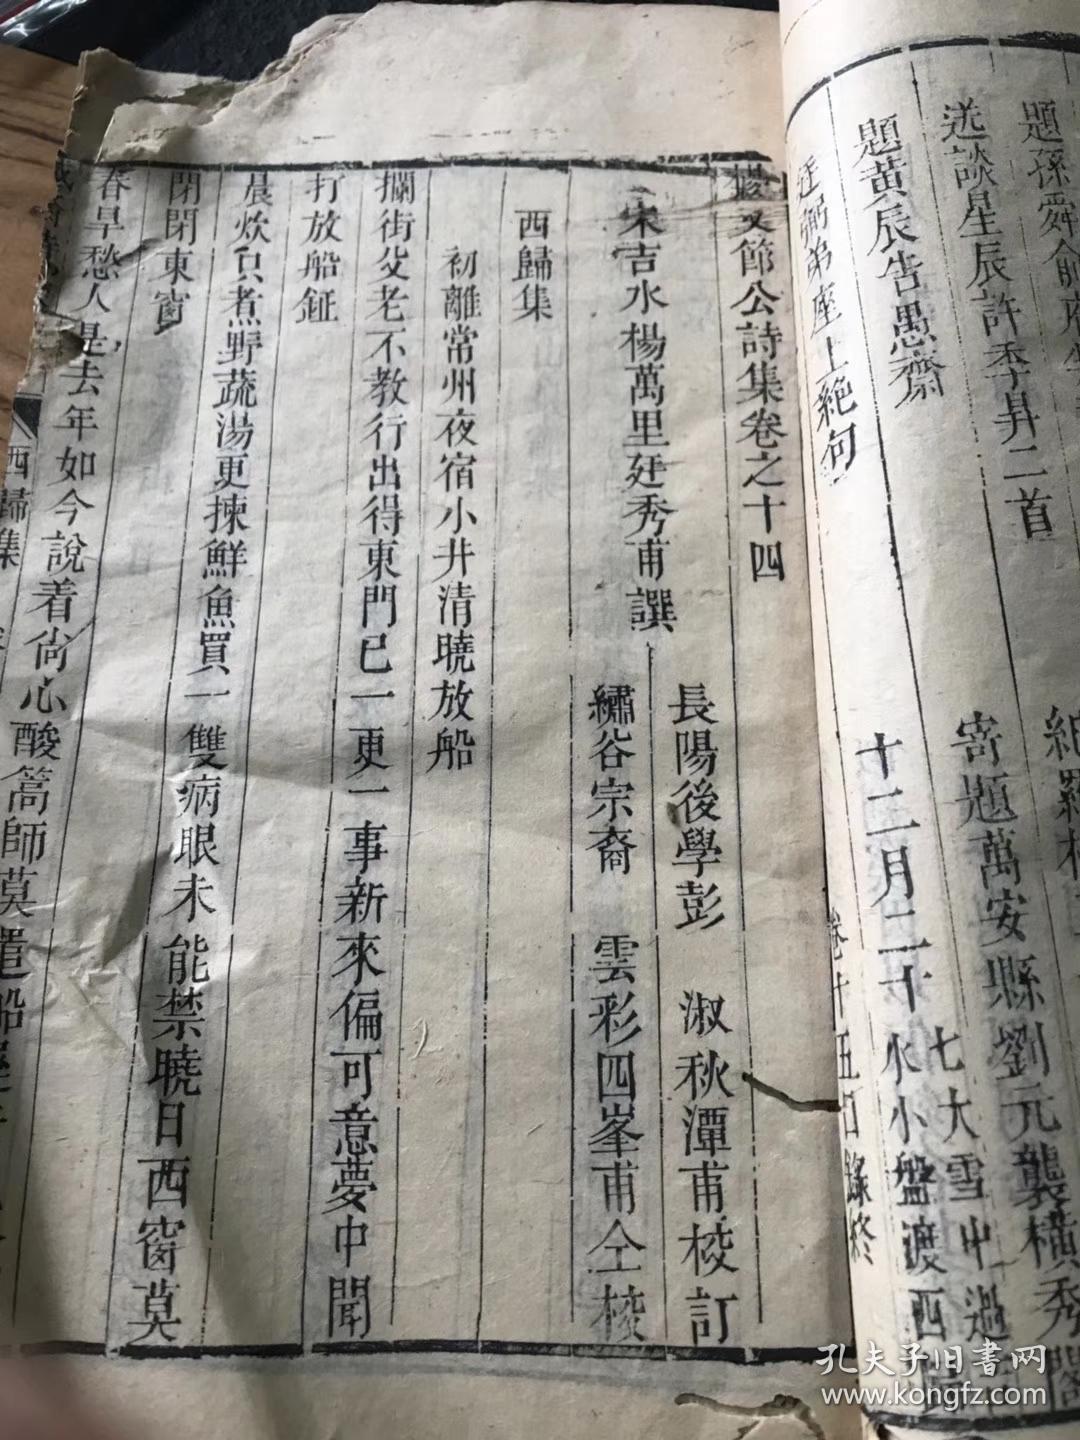 題孫舜
送談星辰許季昇二首
寄題萬安縣劉元襲橫秀閣
題黃辰告愚齋
七大雪中過
十二月二十
水小盤渡西
弼弟座上絶句
楊文節公詩集卷之十四
長陽後學彭 淑秋潭甫校訂
宋吉水楊萬里廷秀甫譔
繡谷宗裔 雲彩四峯甫仝校
西歸集
初離常州夜宿小井清曉放船
攔街父老不教行出得東門已一更一事新來偏可意夢中聞
打放船鉦
晨炊只煮野蔬湯更揀鮮魚買一雙病眼未能禁曉日西窗莫
閉閉東窗
春旱愁人是去年如今說着尙心酸篙師莫遣船
西歸集
孔夫子旧书网
www.kongfz.com